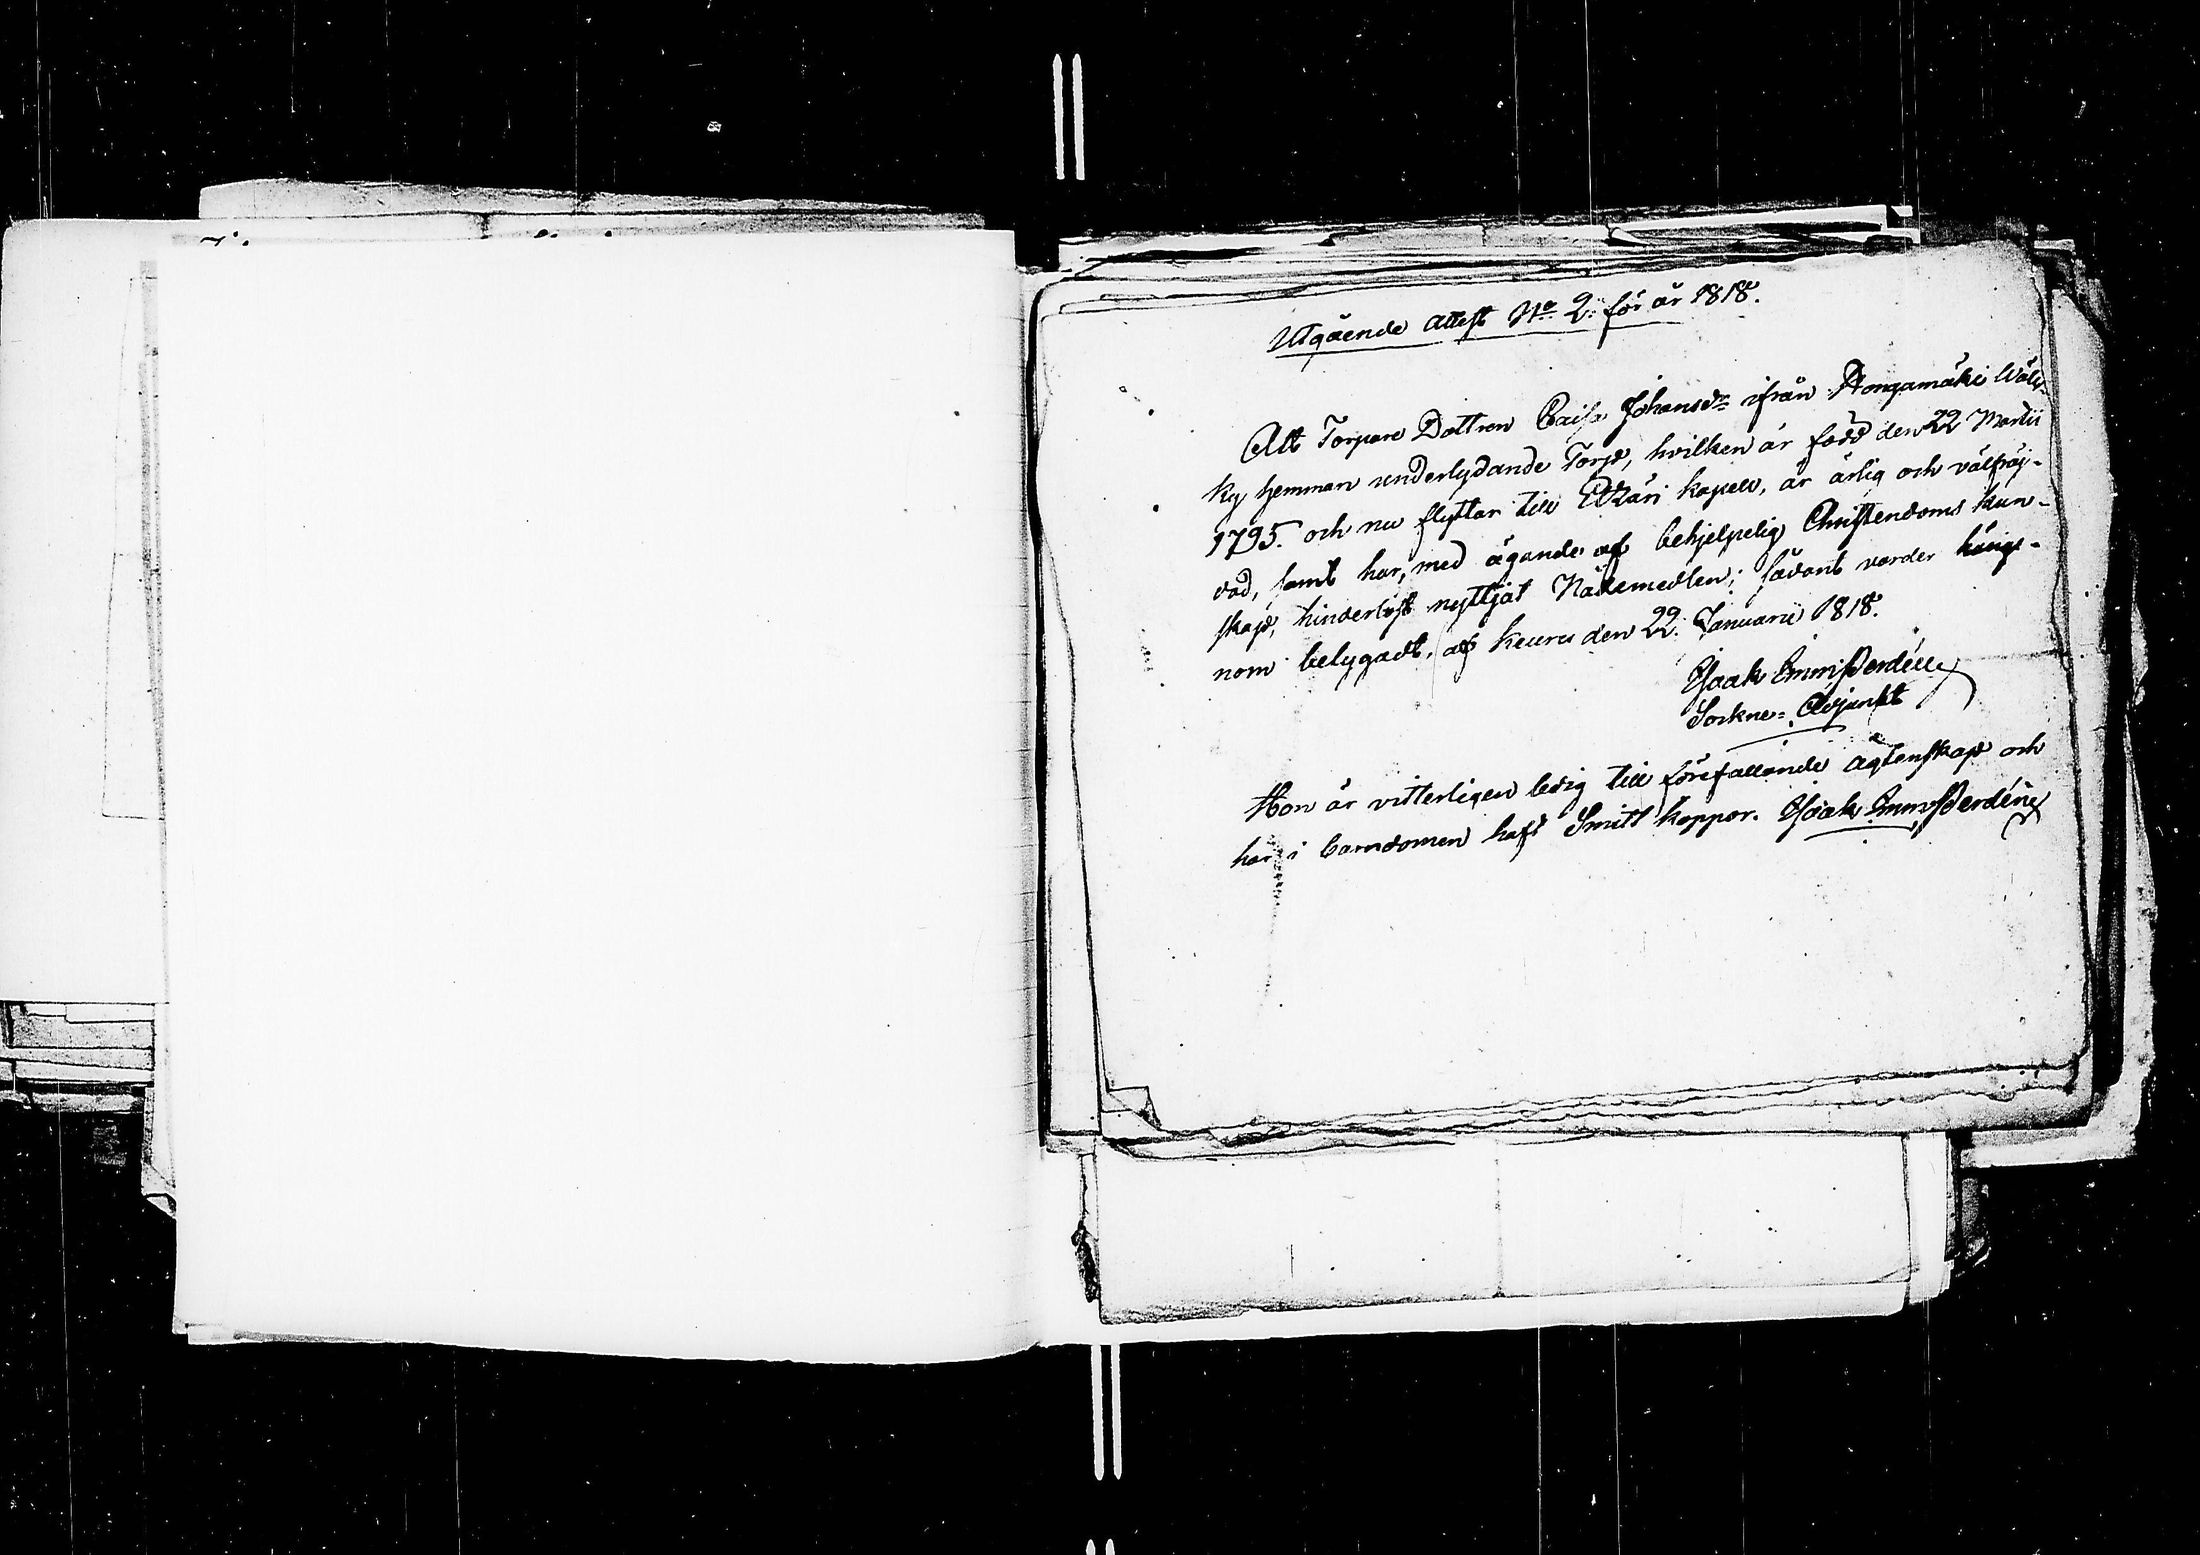 Utgående attest No 2. för år 1818.
Att Torpare Dottren Caisa Johansdr ifrån Hongamäki Wäls-
ky hemman underlydande Torp, hvilken är född den 22 Martii
1795. och nu flyttar till Etzäri kapell, är ärlig och välfräj-
dad, samt har, med ägande af behjelpelig Christendoms kun-
skap, hinderlöst nyttjat Nådemedlen; sådant varder härige-
nom betygadt, af Keuru den 22. Januarii 1818.
Isaak Emn:
Sockne-Adjunkt
Hon är vitterligen ledig till förefallande ägtenskap och
har i barndomen haft Smitt koppor. Isaak Emn: